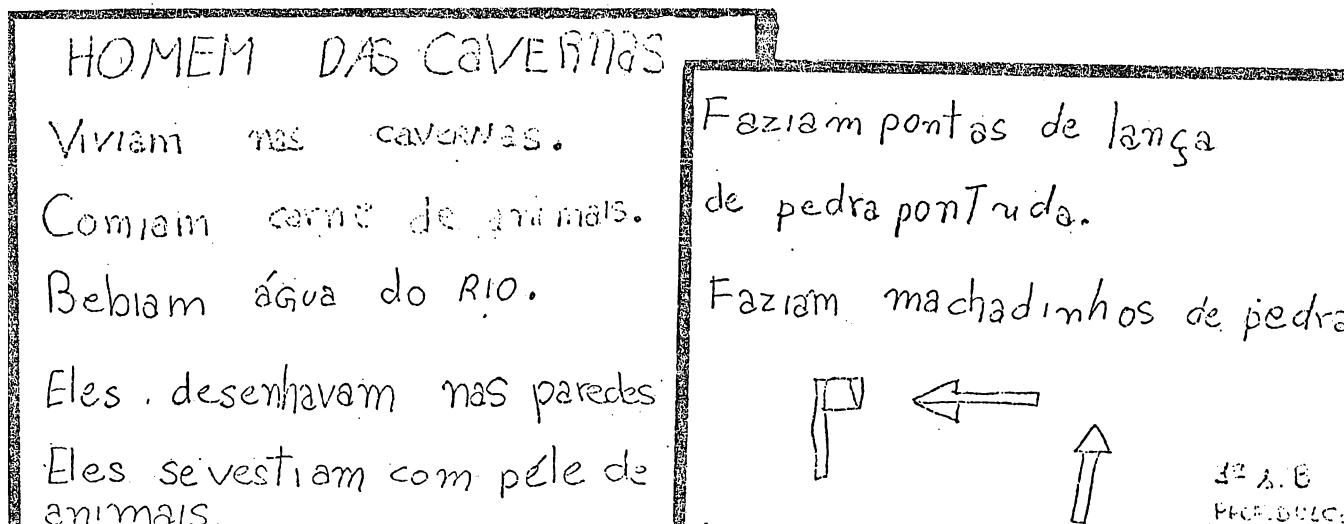 HOMEM DAS CaVERnas
Viviam nas caveRNas.
Comiam carne de animais.
Bebiam áGua do RIO.
Eles . desenhavam nas paredes
Eles se vestiam com péle de
animais.
Faziam pontas de lança
de pedra ponTuda.
Faziam machadinhos de pedra
1ª s. B